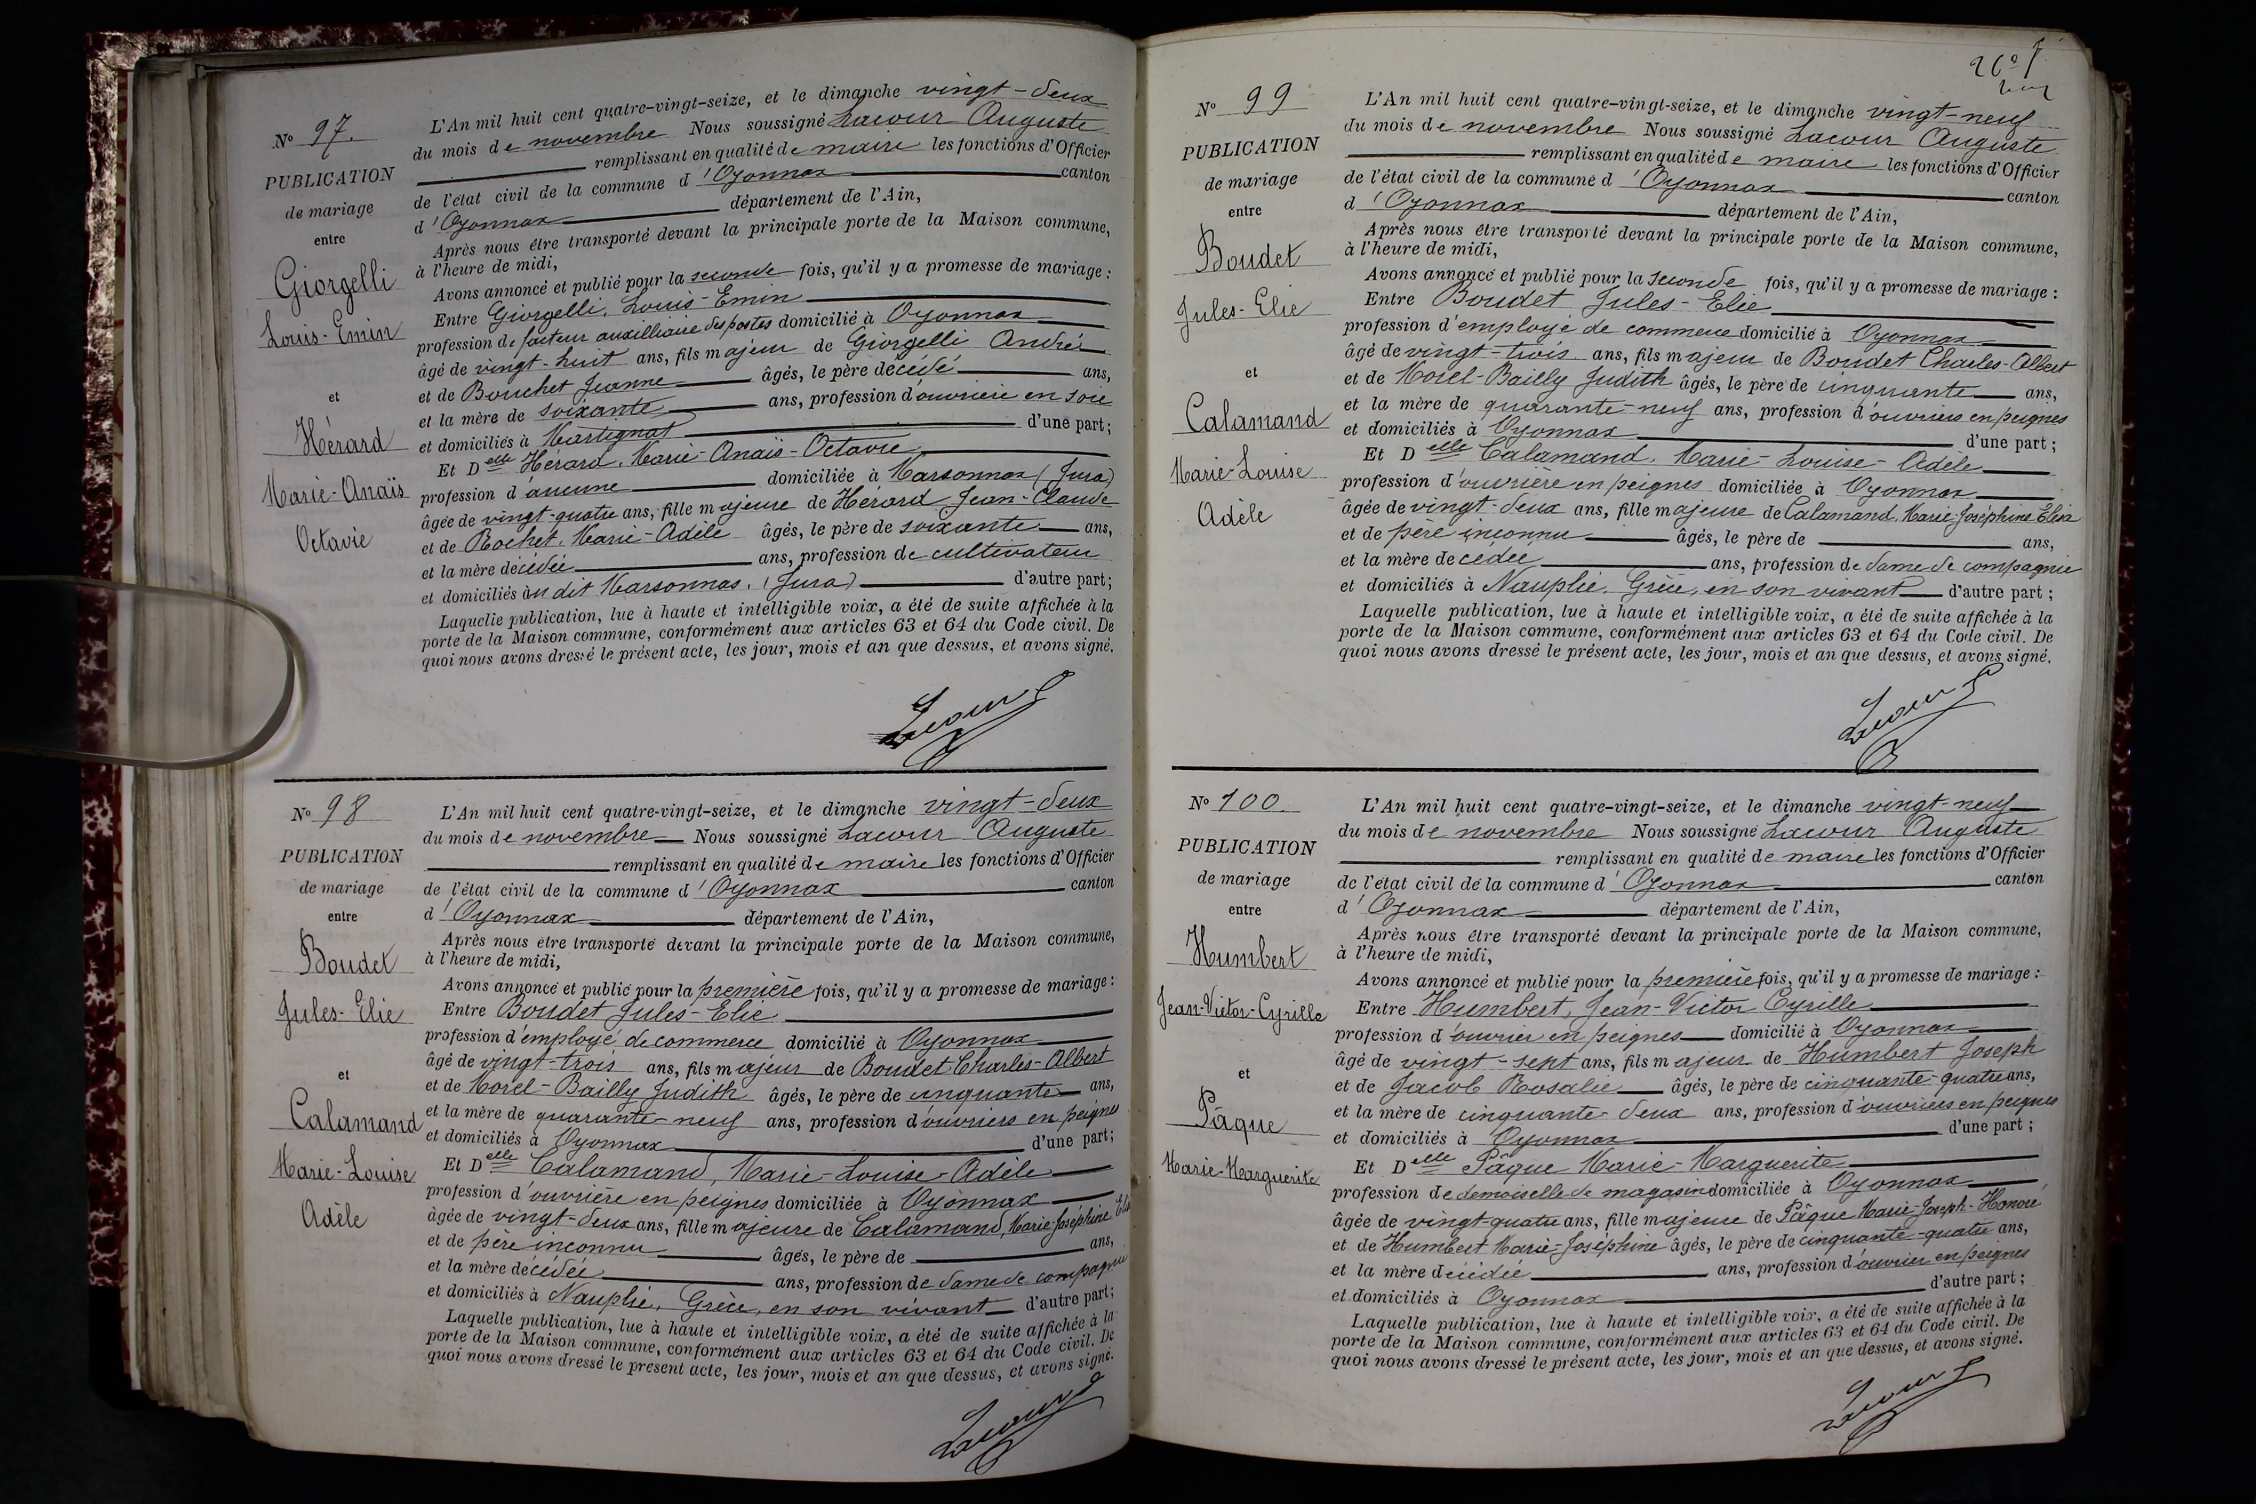 Nº 97.
PUBLICATION
de mariage
entre
Giorgelli
Louis-Emin
et
Hérard
Marie-Anaïs
Octavie
L'An mil huit cent quatre-vingt-seize, et le dimanche vingt-deux
du mois de novembre Nous soussigné Lacour Auguste
remplissant en qualité de maire les fonctions d'Officier
de l'état civil de la commune d'Oyonnax canton
d'Oyonnax département de l'Ain,
Après nous être transporté devant la principale porte de la Maison commune,
à l'heure de midi,
Avons annoncé et publié pour la seconde fois, qu'il y a promesse de mariage :
Entre Giorgelli, Louis-Emin
profession de facteur auxilliaire des postes domicilié à Oyonnax
âgé de vingt-huit ans, fils majeur de Giorgelli André
et de Bouchet Jeanne âgés, le père décédé ans,
et la mère de soixante ans, profession d'ouvrière en soie
et domiciliés à Martignat d'une part;
Et Delle Hérard, Marie-Anaïs-Octavie
profession d'aucune domiciliée à Marsonnas (Jura)
âgée de vingt-quatre ans, fille majeure de Hérard Jean-Claude
et de Rochet, Marie-Adèle âgés, le père de soixante ans,
et la mère décédée ans, profession de cultivateur
et domiciliés au dit Marsonnas, (Jura) d'autre part;
Laquelle publication, lue à haute et intelligible voix, a été de suite affichée à la
porte de la Maison commune, conformément aux articles 63 et 64 du Code civil. De
quoi nous avons dressé le présent acte, les jour, mois et an que dessus, et avons signé.
Lacour
Nº 98
PUBLICATION
de mariage
entre
Boudet
Jules-Elie
et
Calamand
Marie-Louise
Adèle
L'An mil huit cent quatre-vingt-seize, et le dimanche vingt-deux
du mois de novembre Nous soussigné Lacour Auguste
remplissant en qualité de maire les fonctions d'Officier
de l'état civil de la commune d'Oyonnax canton
d'Oyonnax département de l'Ain,
Après nous être transporté devant la principale porte de la Maison commune,
à l'heure de midi,
Avons annoncé et publié pour la première fois, qu'il y a promesse de mariage :
Entre Boudet Jules-Elie
profession d'employé de commerce domicilié à Oyonnax
âgé de vingt-trois ans, fils majeur de Boudet Charles-Albert
et de Morel-Bailly Judith âgés, le père de cinquante ans,
et la mère de quarante-neuf ans, profession d'ouvriers en peignes
et domiciliés à Oyonnax d'une part;
Et Delle Calamand, Marie-Louise-Adèle
profession d'ouvrière en peignes domiciliée à Oyonnax
âgée de vingt-deux ans, fille majeure de Calamand, Marie-Joséphine
et de père inconnu âgés, le père de ans,
et la mère décédée ans, profession de dame de compagnie
et domiciliés à Nauplie, Grèce, en son vivant d'autre part;
Laquelle publication, lue à haute et intelligible voix, a été de suite affichée à la
porte de la Maison commune, conformément aux articles 63 et 64 du Code civil. De
quoi nous avons dressé le présent acte, les jour, mois et an que dessus, et avons signé.
Lacour
Nº 99
PUBLICATION
de mariage
entre
Boudet
Jules-Elie
et
Calamand
Marie-Louise
Adèle
L'An mil huit cent quatre-vingt-seize, et le dimanche vingt-neuf
du mois de novembre Nous soussigné Lacour Auguste
remplissant en qualité de maire les fonctions d'Officier
de l'état civil de la commune d'Oyonnax canton
d'Oyonnax département de l'Ain,
Après nous être transporté devant la principale porte de la Maison commune,
à l'heure de midi,
Avons annoncé et publié pour la seconde fois, qu'il y a promesse de mariage :
Entre Boudet Jules-Elie
profession d'employé de commerce domicilié à Oyonnax
âgé de vingt-trois ans, fils majeur de Boudet Charles-Albert
et de Morel-Bailly Judith âgés, le père de cinquante ans,
et la mère de quarante-neuf ans, profession d'ouvriers en peignes
et domiciliés à Oyonnax d'une part;
Et Delle Calamand, Marie-Louise-Adèle
profession d'ouvrière en peignes domiciliée à Oyonnax
âgée de vingt-deux ans, fille majeure de Calamand, Marie-Joséphine
et de père inconnu âgés, le père de ans,
et la mère décédée ans, profession de dame de compagnie
et domiciliés à Nauplie, Grèce, en son vivant d'autre part;
Laquelle publication, lue à haute et intelligible voix, a été de suite affichée à la
porte de la Maison commune, conformément aux articles 63 et 64 du Code civil. De
quoi nous avons dressé le présent acte, les jour, mois et an que dessus, et avons signé.
Lacour
Nº 100
PUBLICATION
de mariage
entre
Humbert
Jean-Victor-Cyrille
et
Pâque
Marie-Marguerite
L'An mil huit cent quatre-vingt-seize, et le dimanche vingt-neuf
du mois de novembre Nous soussigné Lacour Auguste
remplissant en qualité de maire les fonctions d'Officier
de l'état civil de la commune d'Oyonnax canton
d'Oyonnax département de l'Ain,
Après nous être transporté devant la principale porte de la Maison commune,
à l'heure de midi,
Avons annoncé et publié pour la première fois, qu'il y a promesse de mariage :
Entre Humbert, Jean-Victor Cyrille
profession d'ouvrier en peignes domicilié à Oyonnax
âgé de vingt-sept ans, fils majeur de Humbert Joseph
et de Jacob Rosalie âgés, le père de cinquante-quatre ans,
et la mère de cinquante-deux ans, profession d'ouvriers en peignes
et domiciliés à Oyonnax d'une part;
Et Delle Pâque Marie-Marguerite
profession de demoiselle de magasin domiciliée à Oyonnax
âgée de vingt-quatre ans, fille majeure de Pâque Marie-Joseph-Honoré
et de Humbert Marie-Joséphine âgés, le père de cinquante-quatre ans,
et la mère décédée ans, profession d'ouvrier en peignes
et domiciliés à Oyonnax d'autre part;
Laquelle publication, lue à haute et intelligible voix, a été de suite affichée à la
porte de la Maison commune, conformément aux articles 63 et 64 du Code civil. De
quoi nous avons dressé le présent acte, les jour, mois et an que dessus, et avons signé.
Lacour